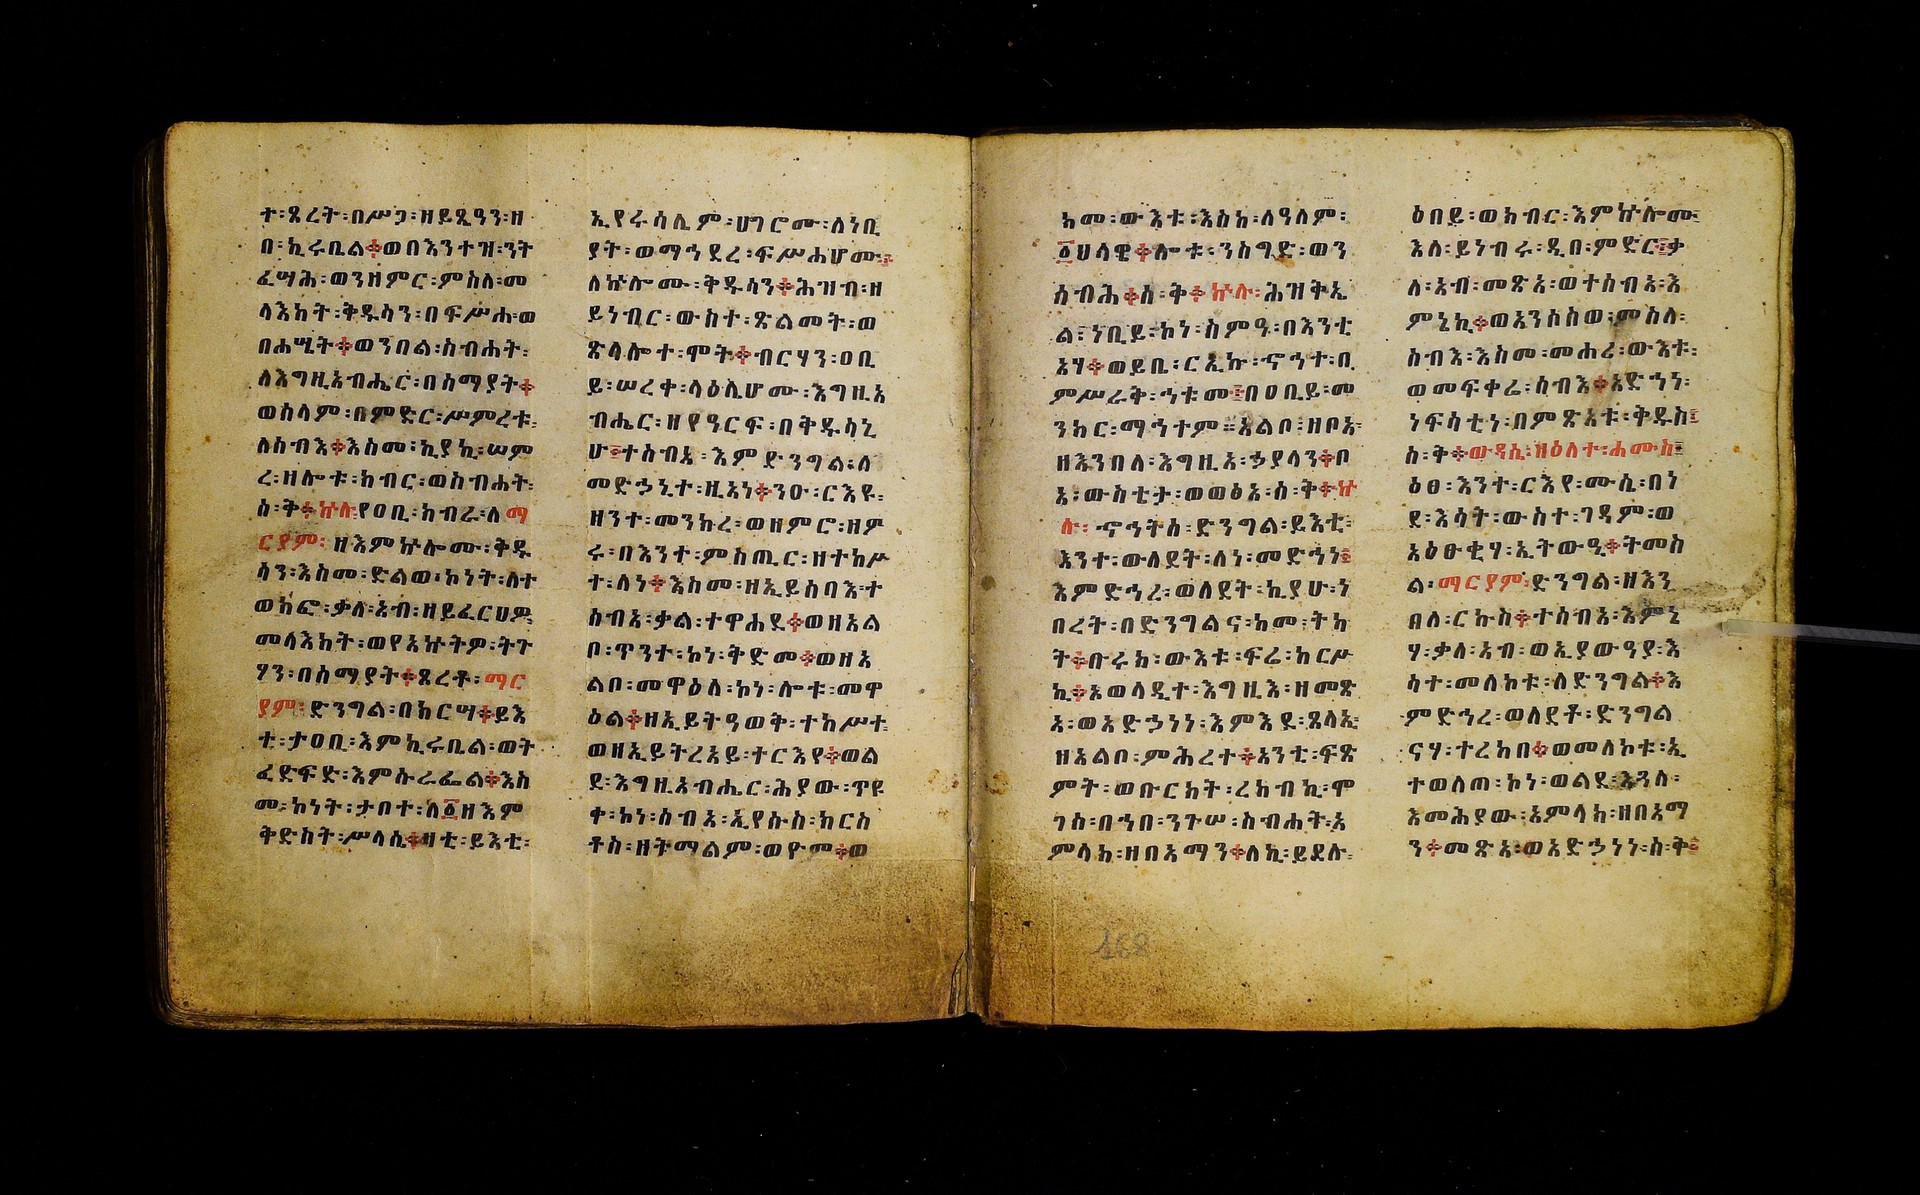 ተ፡ጾረት፡በሥጋ፡ዘይጼዓን፡ዘ
በ፡ኪሩቤል፨ወበእንተዝ፡ንት
ፈሣሕ፡ወንዘምር፡ምስለ፡መ
ላእክት፡ቅዱሳን፡በፍሥሐ፡ወ
በሐሤት፨ወንበል፡ስብሐት፡
ለእግዚአብሔር፡በሰማያት፨
ወሰላም፡በምድር፡ሥምረቱ፡
ለሰብእ፨እስመ፡ኪያኪ፡ሠም
ረ፡ዘሎቱ፡ክብር፡ወስብሐት፡
ስ፡ቅ፨ኵሉ፡የዐቢ፡ክብራ፡ለማ
ርያም፡ዘእምኵሎሙ፡ቅዱ
ሳን፡እስመ፡ድልው፡ኮነት፡ለተ
ወክፎ፡ቃለ፡አብ፡ዘይፈርህዎ
መላእክት፡ወየአኵትዎ፡ትጉ
ሃን፡በሰማያት፨ጾረቶ፡ማር
ያም፡ድንግል፡በከርሣ፨ይእ
ቲ፡ታዐቢ፡እምኪሩቤል፡ወት
ፈድፍድ፡እምሱራፌል፨እስ
መ፡ኮነት፡ታቦተ፡ለ፩ዘእም
ቅድስት፡ሥላሴ፨ዛቲ፡ይእቲ፡
ኢየሩሳሌም፡ሀገሮሙ፡ለነቢ
ያት፡ወማኅደረ፡ፍሥሐሆሙ፡
ለኵሎሙ፡ቅዱሳን፨ሕዝብ፡ዘ
ይነብር፡ውስተ፡ጽልመት፡ወ
ጽላሎተ፡ሞት፨ብርሃን፡ዐቢ
ይ፡ሠረቀ፡ላዕሌሆሙ፡እግዚአ
ብሔር፡ዘየዓርፍ፡በቅዱሳኒ
ሁ፡ተሰብአ፡እምድንግል፡ለ
መድኃኒተ፡ዚአነ፨ንዑ፡ርእዩ፡
ዘንተ፡መንክረ፡ወዘምሮ፡ዘም
ሩ፡በእንተ፡ምስጢር፡ዘተከሥ
ተ፡ለነ፨እስመ፡ዘኢይሰበእ፡ተ
ሰብአ፡ቃል፡ተዋሐደ፨ወዘአል
ቦ፡ጥንተ፡ኮነ፡ቅድመ፨ወዘአ
ልቦ፡መዋዕለ፡ኮነ፡ሎቱ፡መዋ
ዕል፨ዘኢይትዓወቅ፡ተከሥተ፡
ወዘኢይትረአይ፡ተርእየ፨ወል
ደ፡እግዚአብሔር፡ሕያው፡ጥዩ
ቀ፡ኮነ፡ሰብአ፡ኢየሱስ፡ክርስ
ቶስ፡ዘትማልም፡ወዮም፨ወ
ከመ፡ውእቱ፡እስከ፡ለዓለም፡
፩ህላዌ፨ሎቱ፡ንስግድ፡ወን
ሰብሕ፨ስ፡ቅ፨ኵሉ፡ሕዝቅኤ
ል፡ነቢይ፡ኮነ፡ስምዓ፡በእንቲ
አሃ፨ወይቤ፡ርኢኩ፡ኆኅተ፡በ
ምሥራቅ፡ኅቱመ፡በዐቢይ፡መ
ንክር፡ማኅተም፡አልቦ፡ዘቦአ፡
ዘእንበለ፡እግዚአ፡ኃያላን፨ቦ
አ፡ውስቴታ፡ወወፅአ፡ስ፡ቅ፨ኵ
ሉ፡ኆኅትሰ፡ድንግል፡ይእቲ፡
እንተ፡ወለደት፡ለነ፡መድኅነ፡
እምድኅረ፡ወለደት፡ኪያሁ፡ነ
በረት፡በድንግልና፡ከመ፡ትካ
ት፨ቡሩክ፡ውእቱ፡ፍሬ፡ከርሥ
ኪ፨አወላዲተ፡እግዚእ፡ዘመጽ
አ፡ወአድኃነነ፡እምእደ፡ጸላኢ፡
ዘአልቦ፡ምሕረተ፨አንቲ፡ፍጽ
ምት፡ወቡርክት፡ረከብኪ፡ሞ
ገሰ፡በኀበ፡ንጉሠ፡ስብሐት፡አ
ምላክ፡ዘበአማን፨ለኪ፡ይደሉ፡
ዕበይ፡ወክብር፡እምኵሎሙ፡
እለ፡ይነብሩ፡ዲበ፡ምድር፡ቃ
ለ፡አብ፡መጽአ፡ወተሰብአ፡እ
ምኔኪ፨ወአንሶሰወ፡ምስለ፡
ሰብእ፡እስመ፡መሐሪ፡ውእቱ፡
ወመፍቀሬ፡ሰብእ፨አድኀነ፡
ነፍሳቲነ፡በምጽአቱ፡ቅዱስ፡
ስ፡ቅ፨ውዳሴ፡ዘዕለተ፡ሐሙስ፡
ዕፀ፡እንተ፡ርእየ፡ሙሴ፡በነ
ደ፡እሳት፡ውስተ፡ገዳም፡ወ
አዕፁቂሃ፡ኢትውዒ፨ትመስ
ል፡ማርያም፡ድንግል፡ዘእን
በለ፡ርኩስ፨ተሰብአ፡እምኔ
ሃ፡ቃለ፡አብ፡ወኢያውዓያ፡እ
ሳተ፡መለኮቱ፡ለድንግል፨እ
ምድኅረ፡ወለደቶ፡ድንግል
ናሃ፡ተረክበ፨ወመለኮቱ፡ኢ
ተወለጠ፡ኮነ፡ወልደ፡እጓለ፡
እመሕያው፡አምላክ፡ዘበአማ
ን፨መጽአ፡ወአድኃነነ፡ስ፡ቅ፡
168